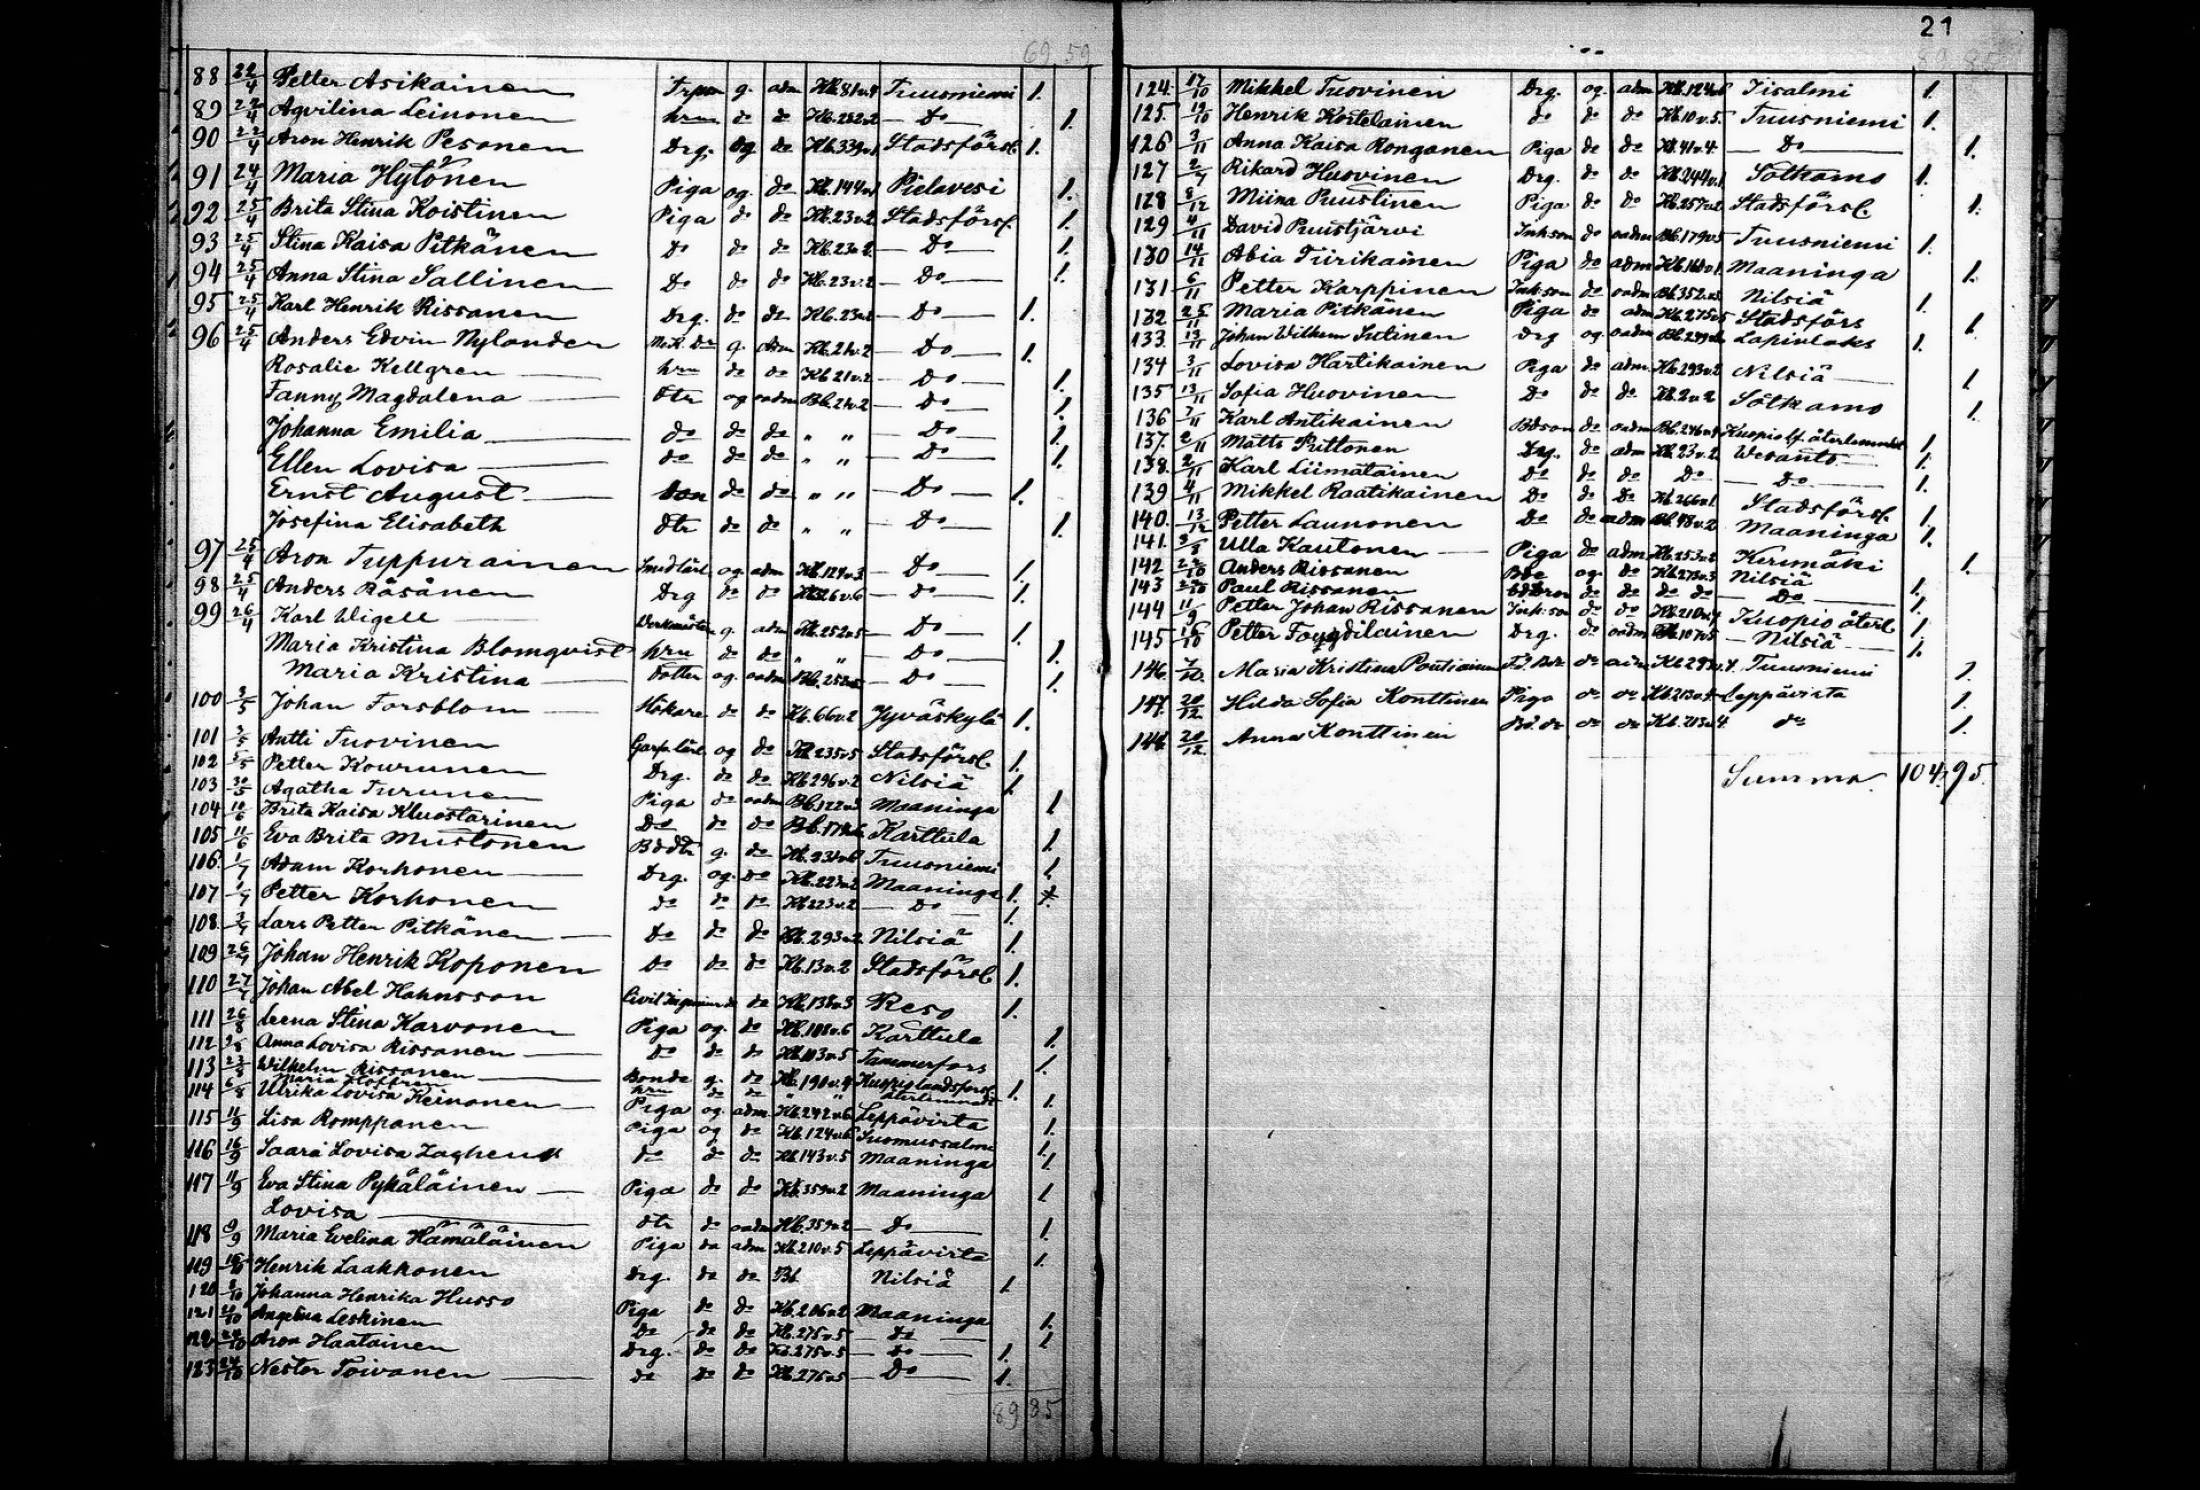 21
69 59
88 22/4 Petter Asikainen Trpm g. adm Kb.81v.4 Tuusniemi 1.
89 22/4 Agvilina Leinonen hru do do Kb.232v.2 — Do — 1.
90 22/4 Aron Henrik Pesonen Drg. og do Kb.339v.1 Stadsförsl. 1.
91 24/4 Maria Hytönen Piga og. do Kb.144v.1 Pielavesi 1.
92 25/4 Brita Stina Koistinen Piga do do Kb.23v.2 Stadsförsl. 1.
93 25/4 Stina Kaisa Pitkänen Do do do Kb.23v.2. — Do — 1.
94 25/4 Anna Stina Sallinen Do do do Kb.23v.2 — Do — 1.
95 25/4 Karl Henrik Rissanen Drg. do do Kb.23v.2 — Do — 1.
96 25/4 Anders Edvin Nylander g. adm Kb.21v.2 — Do — 1.
Rosalie Kellgren hru do do Kb.21v.2 — Do — 1.
Fanny Magdalena Dtr og oadm Bb.21v.2 — Do — 1.
Johanna Emilia do do do " " — Do — 1.
Ellen Lovisa do do do " " — Do — 1.
Ernst August son do do " " — Do — 1.
Josefina Elisabeth dtr do do " " — Do — 1.
97 25/4 Aron Tuppurainen Smedlärl. og. adm Kb.124v.3 — Do — 1.
98 25/4 Anders Räsänen Drg do do Kb.326v.6 — do — 1.
99 26/4 Karl Wigell Werkmästare g. adm Kb.252v.5 — Do — 1.
Maria Kristina Blomqvist hru do do " " — Do — 1.
Maria Kristina Dotter og. oadm Bb.252v.5 — Do — 1.
100 3/5 Johan Forsblom Hökare do do Kb.66v.2 Jyväskylä 1.
101 3/5 Antti Tuovinen Garfv.lärl og do Kb.235v.5 Stadsförsl. 1.
102 5/5 Petter Kourunen Drg. do do Kb.296v.2 Nilsiä 1.
103 30/5 Agatha Turunen Piga do oadm Bb.122v.3 Maaninga 1
104 10/6 Brita Kaisa Kluostarinen Do do do Karttula 1.
105 11/6 Eva Brita Mustonen Bddtr g. do Kb.231v.6 Tuusniemi 1.
106. 1/7 Adam Korhonen Drg. og. do Kb.223v.2 Maaninga 1.
107 1/7 Petter Korhonen do do do Kb.223v.2 — Do — 1.
108. 3/7 Lars Petter Pitkänen Do do do Kb.293v.2. Nilsiä 1.
109 26/7 Johan Henrik Koponen Do do do Kb.13v.2 Stadsförsl. 1.
110 27/7 Johan Abel Hahnsson Civil Ingenieur do do Kb.138v.3 Reso 1.
111 26/8 Leena Stina Karvonen Piga og. do Kb.108v.6 Karttula 1.
112 Anna Lovisa Rissanen Do do do Kb.103v.5 Tammerfors 1.
113 23/8 Wilhelm Rissanen Bonde g. do Kb.190v.4 Kuopio landsförsl. 1.
Maria Hoffren hru do do " " återlemnadt 1.
114 6/8 Ulrika Lovisa Keinonen Piga og. adm. Kb.242v.6 Leppävirta 1.
115 11/9 Lisa Romppanen Piga og do Kb.124v.6 Suomussalmi 1.
116 16/9 Saara Lovisa Zaghen do do do Kb.143v.5 Maaninga 1.
117 11/9 Eva Stina Pykäläinen Piga do do Kb.359v.2 Maaninga 1
Lovisa dtr do oadm Kb.359v.2 — Do — 1.
118 9/9 Maria Evelina Hämäläinen Piga do adm Kb.210v.5 Leppävirta 1.
119 Henrik Laakkonen Drg. do do Bb Nilsiä 1.
120 8/10 Johanna Henrika Husso Piga do do Kb.206v.2 Maaninga 1.
121 Angelina Leskinen Do do do Kb.275v.5 — Do — 1
122 24/10 Aron Haatainen Drg. do do Kb.275v.5 — Do — 1.
123 24/10 Nestor Toivanen do do do Kb.275v.5 — Do 1.
89 85
124. 17/10 Mikkel Tuovinen Drg. og. adm Kb.124v.5 Iisalmi 1.
125. 19/10 Henrik Kortelainen do do do Kb.10v.5. Tuusniemi 1.
126 3/11 Anna Kaisa Ronganen Piga do do Kb.41v.4. — Do — 1.
127 Rikard Huovinen Drg. do do Kb.244v.1 Sotkamo 1.
128 8/12 Miina Puustinen Piga do do Kb.257v.2 Stadsförsl. 1.
129 4/11 David Puustjärvi Inh:son do oadm Bb.179v.5 Tuusniemi 1.
130 14/11 Abia Tiirikainen Piga do adm Kb.160v.1 Maaninga 1.
131 6/11 Petter Karppinen Inh:son do oadm Bb.352v.3 Nilsiä 1.
132 25/11 Maria Pitkänen Piga do adm Kb.275v.5 Stadsförs 1.
133. 13/11 Johan Wilhem Sutinen Drg og. oadm Bb.249v.6 Lapinlaks 1.
134 3/11 Lovisa Hartikainen Piga do adm. Kb.293v.2 Nilsiä 1
135 13/11 Sofia Huovinen Do do do Kb.2v.2 Sotkamo 1.
136 7/11 Karl Antikainen Bdson do oadm Bb.246v.4 Kuopio lf. återlemnadt 1.
137. 2/11 Matts Puttonen Drg. do adm Kb.23v.2. Wesanto 1.
138. 2/11 Karl Liimatainen Do do do Do — Do — 1.
139 4/11 Mikkel Raatikainen Do do Do Kb.266v.1. Stadsförsl. 1.
140. 13/12 Petter Launonen Do do oadm Bb.48v.2 Maaninga 1.
141. Ulla Kautonen Piga do adm Kb.253v.2 Kerimäki 1.
142 Anders Rissanen Bde og. do Kb.273v.3 Nilsiä 1.
143 Paul Rissanen do do do do Do 1.
144 11/9 Petter Johan Rissanen Inh:son do do Kb.210v.4 Kuopio återl 1.
145 15/10 Petter Drg. do oadm Bb.107v.5 — Nilsiä — 1.
146. Maria Kristina do adm Kb 298v.4. Tuusniemi 1.
147. 20/12. Hilda Sofia Konttinen Piga do do Kb 213v.4 Leppävirta 1.
148. 20/12. Anna Konttinen Bd.dr do do Kb.213v.4. do 1.
Summa 104. 95.